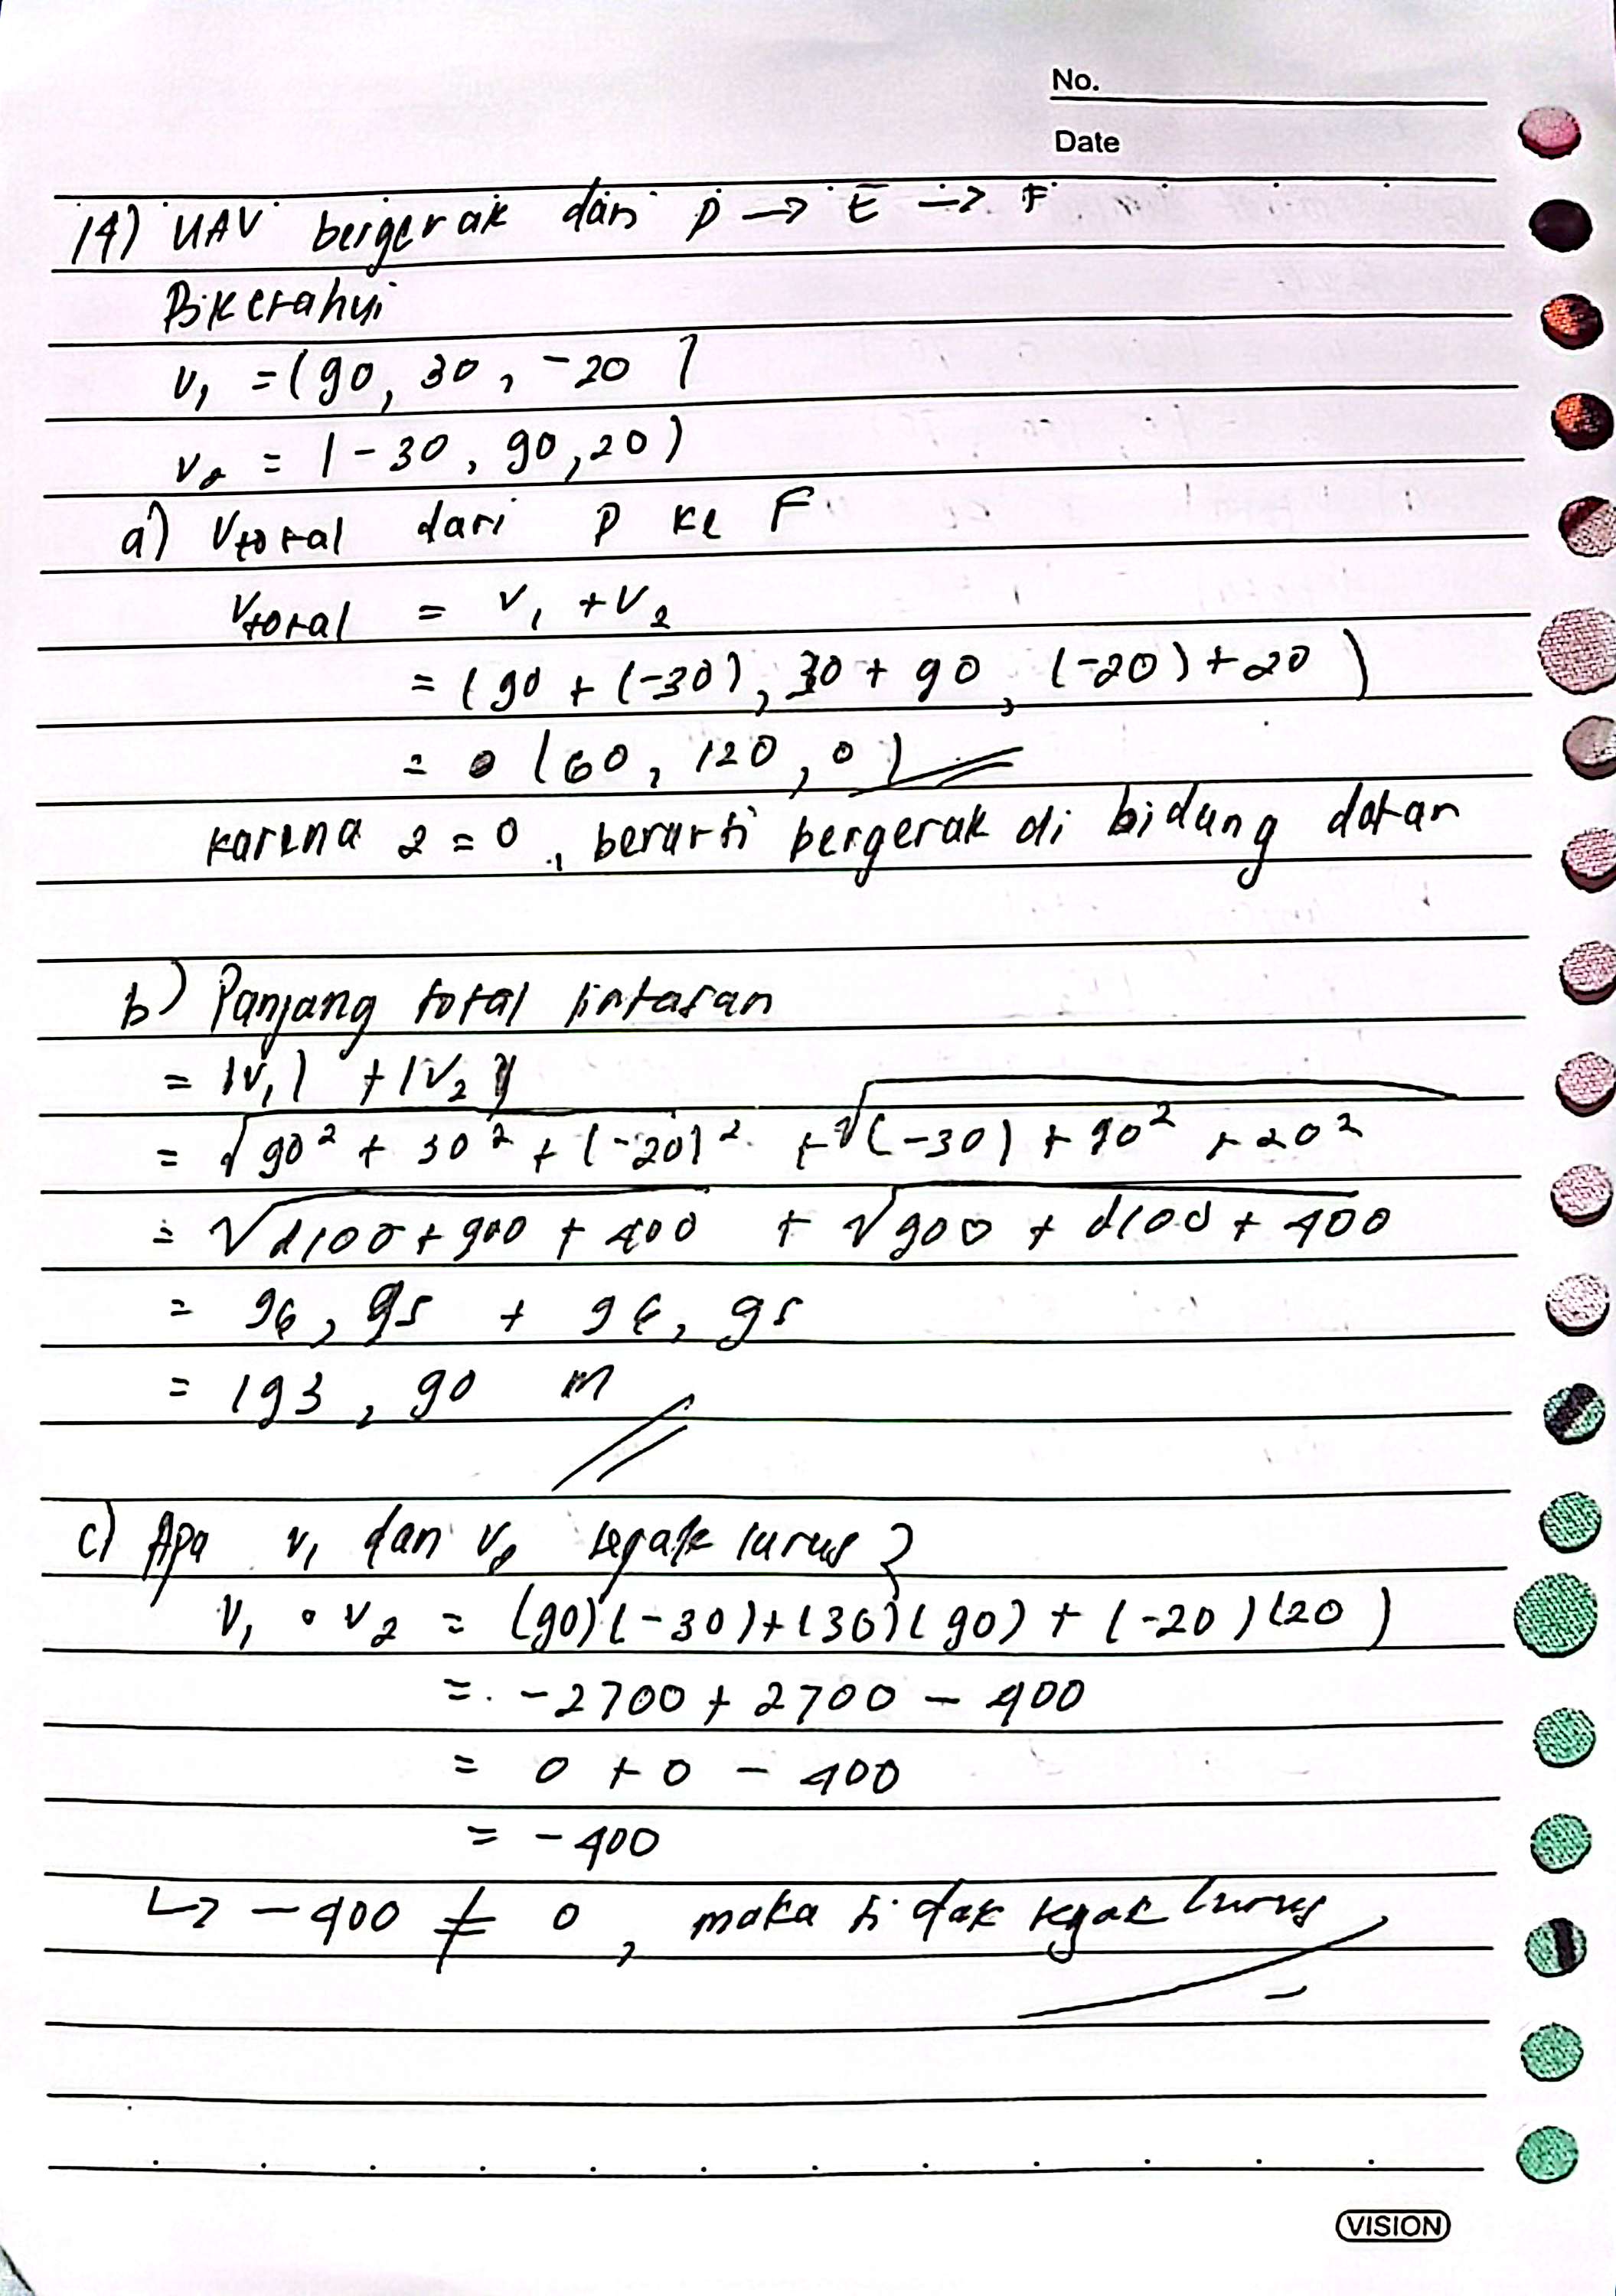 No.
Date
14) UAV bergerak dari D → E → F
Diketahui
v₁ = (90, 30, -20)
v₂ = (-30, 90, 20)
a) Vtotal dari D ke F
Vtotal = v₁ + v₂
= (90 + (-30), 30 + 90, (-20) + 20)
= (60, 120, 0)
karena z = 0, berarti bergerak di bidang datar
b) Panjang total lintasan
= |v₁| + |v₂|
= √90² + 30² + (-20)² + √(-30) + 90² + 20²
= √8100 + 900 + 400 + √900 + 8100 + 400
= 96,95 + 96,95
= 193,90 m
c) Apa v₁ dan v₂ tegak lurus?
V₁ • v₂ = (90)(-30) + (30)(90) + (-20)(20)
= -2700 + 2700 - 400
= 0 + 0 - 400
= -400
↳ -400 ≠ 0, maka tidak tegak lurus
VISION